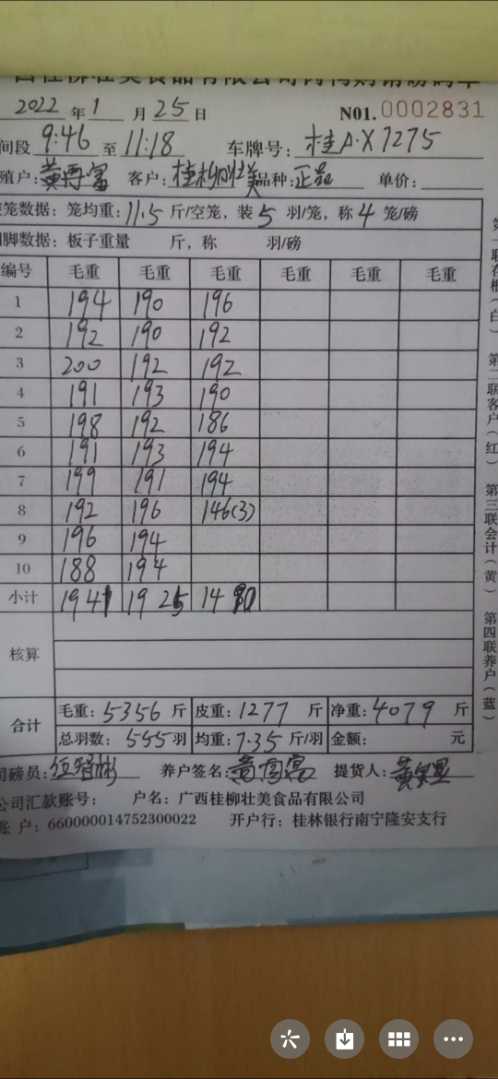 2022 年 1 月 25 日 N01. 0002831
间段 9:46 至 11:18 车牌号: 桂A·X7275
殖户: 黄再富 客户: 桂柳壮美 品种: 正品 单价:
笼数据: 笼均重: 11.5 斤/空笼, 装 5 羽/笼, 称 4 笼/磅
脚数据: 板子重量 斤, 称 羽/磅
编号 毛重 毛重 毛重 毛重 毛重 毛重
1 194 190 196
2 192 190 192
3 200 192 192
4 191 193 190
5 198 192 186
6 191 193 194
7 199 191 194
8 192 196 146(3)
9 196 194
10 188 194
小计 1941 1925 14
核算
合计 毛重: 5356 斤 皮重: 1277 斤 净重: 4079 斤
总羽数: 555 羽 均重: 7.35 斤/羽 金额: 元
司磅员: 养户签名: 提货人:
公司汇款账号: 户名: 广西桂柳壮美食品有限公司
账 户: 660000014752300022 开户行: 桂林银行南宁隆安支行
第一联存根(白) 第二联客户(红) 第三联会计(黄) 第四联养户(蓝)